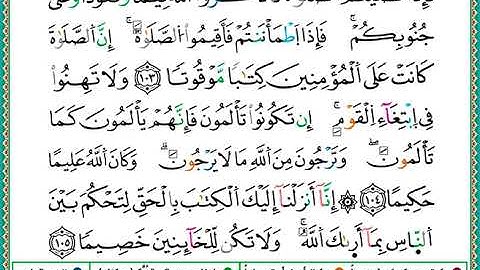 جُنُوبِكُمْ ۚ فَإِذَا ٱطْمَأْنَنتُمْ فَأَقِيمُوا۟ ٱلصَّلَوٰةَ ۚ إِنَّ ٱلصَّلَوٰةَ
كَانَتْ عَلَى ٱلْمُؤْمِنِينَ كِتَـٰبًا مَّوْقُوتًا ١٠٣ وَلَا تَهِنُوا۟
فِى ٱبْتِغَآءِ ٱلْقَوْمِ ۖ إِن تَكُونُوا۟ تَأْلَمُونَ فَإِنَّهُمْ يَأْلَمُونَ كَمَا
تَأْلَمُونَ ۖ وَتَرْجُونَ مِنَ ٱللَّهِ مَا لَا يَرْجُونَ ۗ وَكَانَ ٱللَّهُ عَلِيمًا
حَكِيمًا ١٠٤ إِنَّآ أَنزَلْنَآ إِلَيْكَ ٱلْكِتَـٰبَ بِٱلْحَقِّ لِتَحْكُمَ بَيْنَ
ٱلنَّاسِ بِمَآ أَرَىٰكَ ٱللَّهُ ۚ وَلَا تَكُن لِّلْخَآئِنِينَ خَصِيمًا ١٠٥